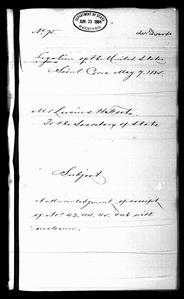 No 75
DEPARTMENT OF STATE
JUN 23 1884
Legation of the United States
Seoul Corea May 7, 1884.
Mr Lucius H. Foote
To the Secretary of State
Subject
Acknowledgment of receipt
of Nos 43, 44, 45, & 46 with
enclosures.